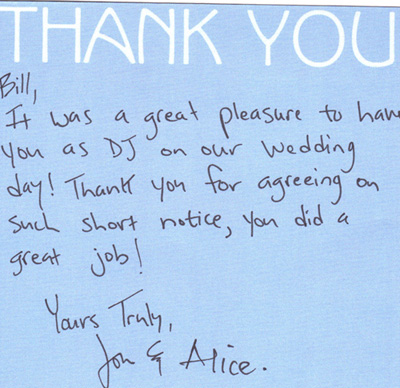 THANK YOU
Bill,
It was a great pleasure to have
you as DJ on our wedding
day! Thank you for agreeing on
such short notice, you did a
great job!
Yours Truly,
Jon & Alice.